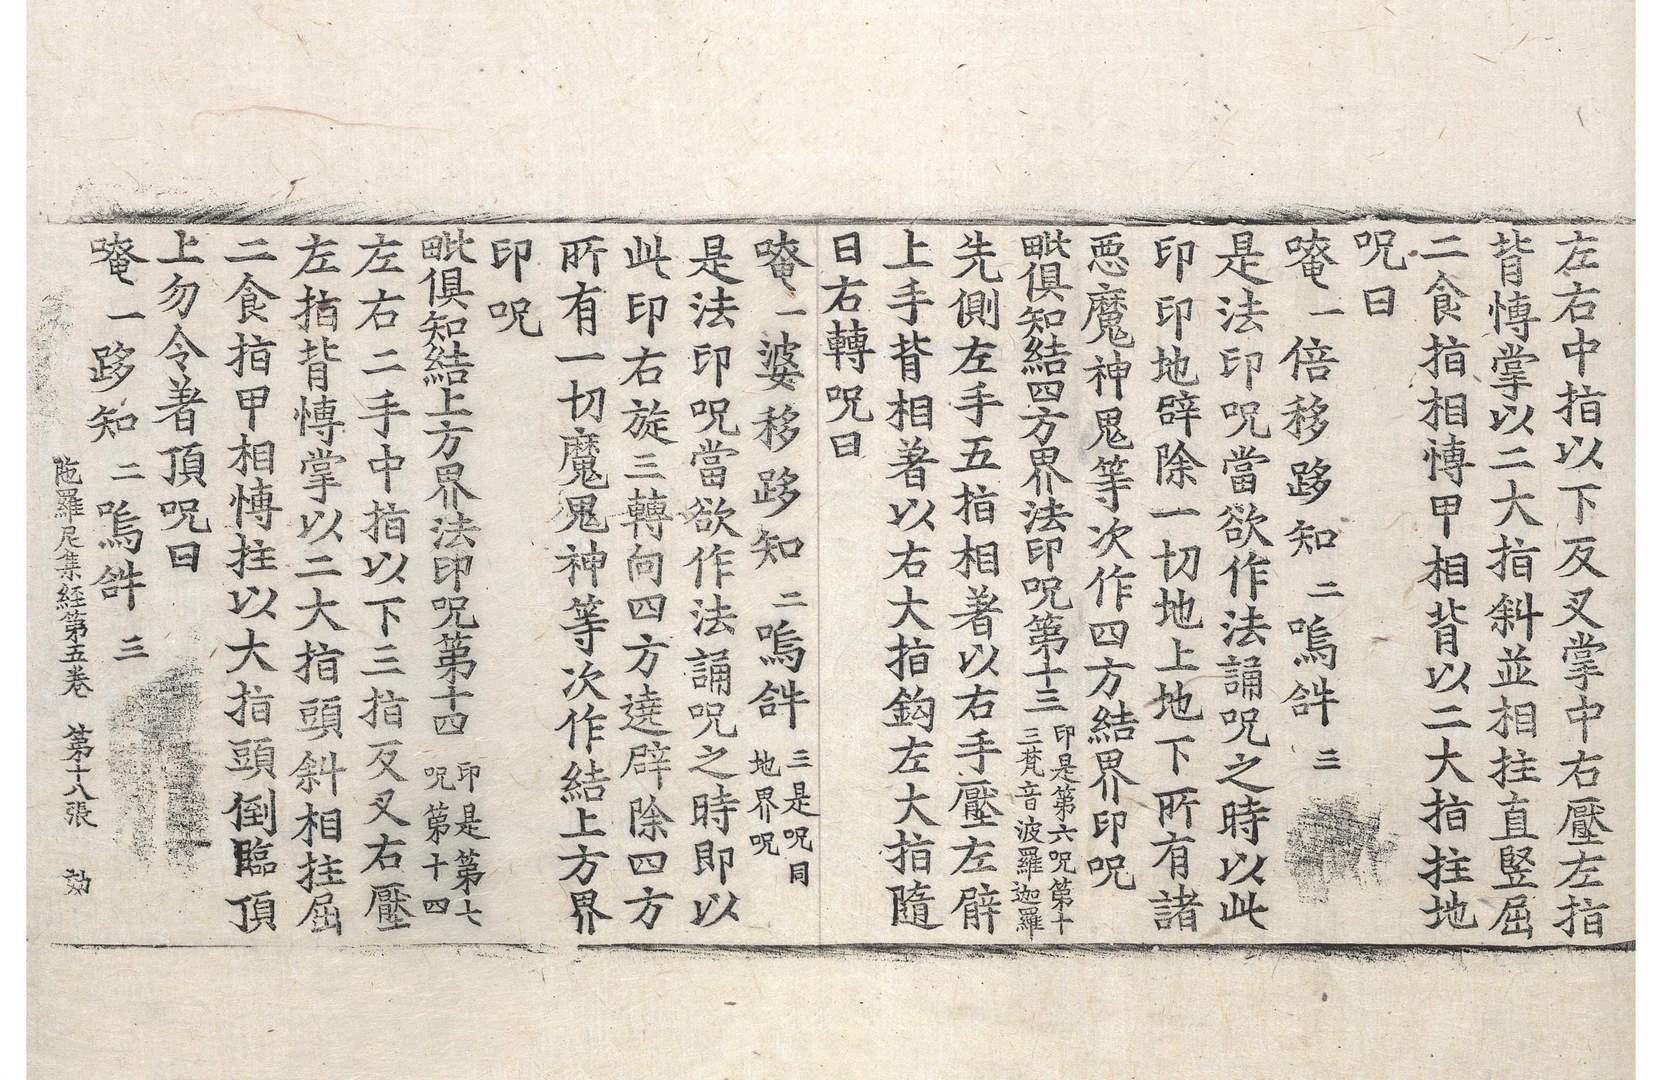 左右中指以下反叉掌中右壓左指
背愽掌以二大指斜並相拄直竪屈
二食指相愽甲相背以二大指拄地
呪曰
唵一倍移跢知二嗚𤙖三
是法印呪當欲作法誦呪之時以此
印印地辟除一切地上地下所有諸
惡魔神鬼等次作四方結界印呪
毗俱知結四方界法印呪第十三印是第六呪第十三梵音波羅迦羅
先側左手五指相著以右手壓左臂
上手背相著以右大指鈎左大指隨
日右轉呪曰
唵一婆移跢知二嗚𤙖三是呪同地界呪
是法印呪當欲作法誦呪之時即以
此印右旋三轉向四方遶辟除四方
所有一切魔鬼神等次作結上方界
印呪
毗俱知結上方界法印呪第十四印是第七呪第十四
左右二手中指以下三指反叉右壓
左指背愽掌以二大指頭斜相拄屈
二食指甲相愽拄以大指頭倒臨頂
上勿令著頂呪曰
唵一跢知二嗚𤙖三
陁羅尼集経第五卷 第十八張